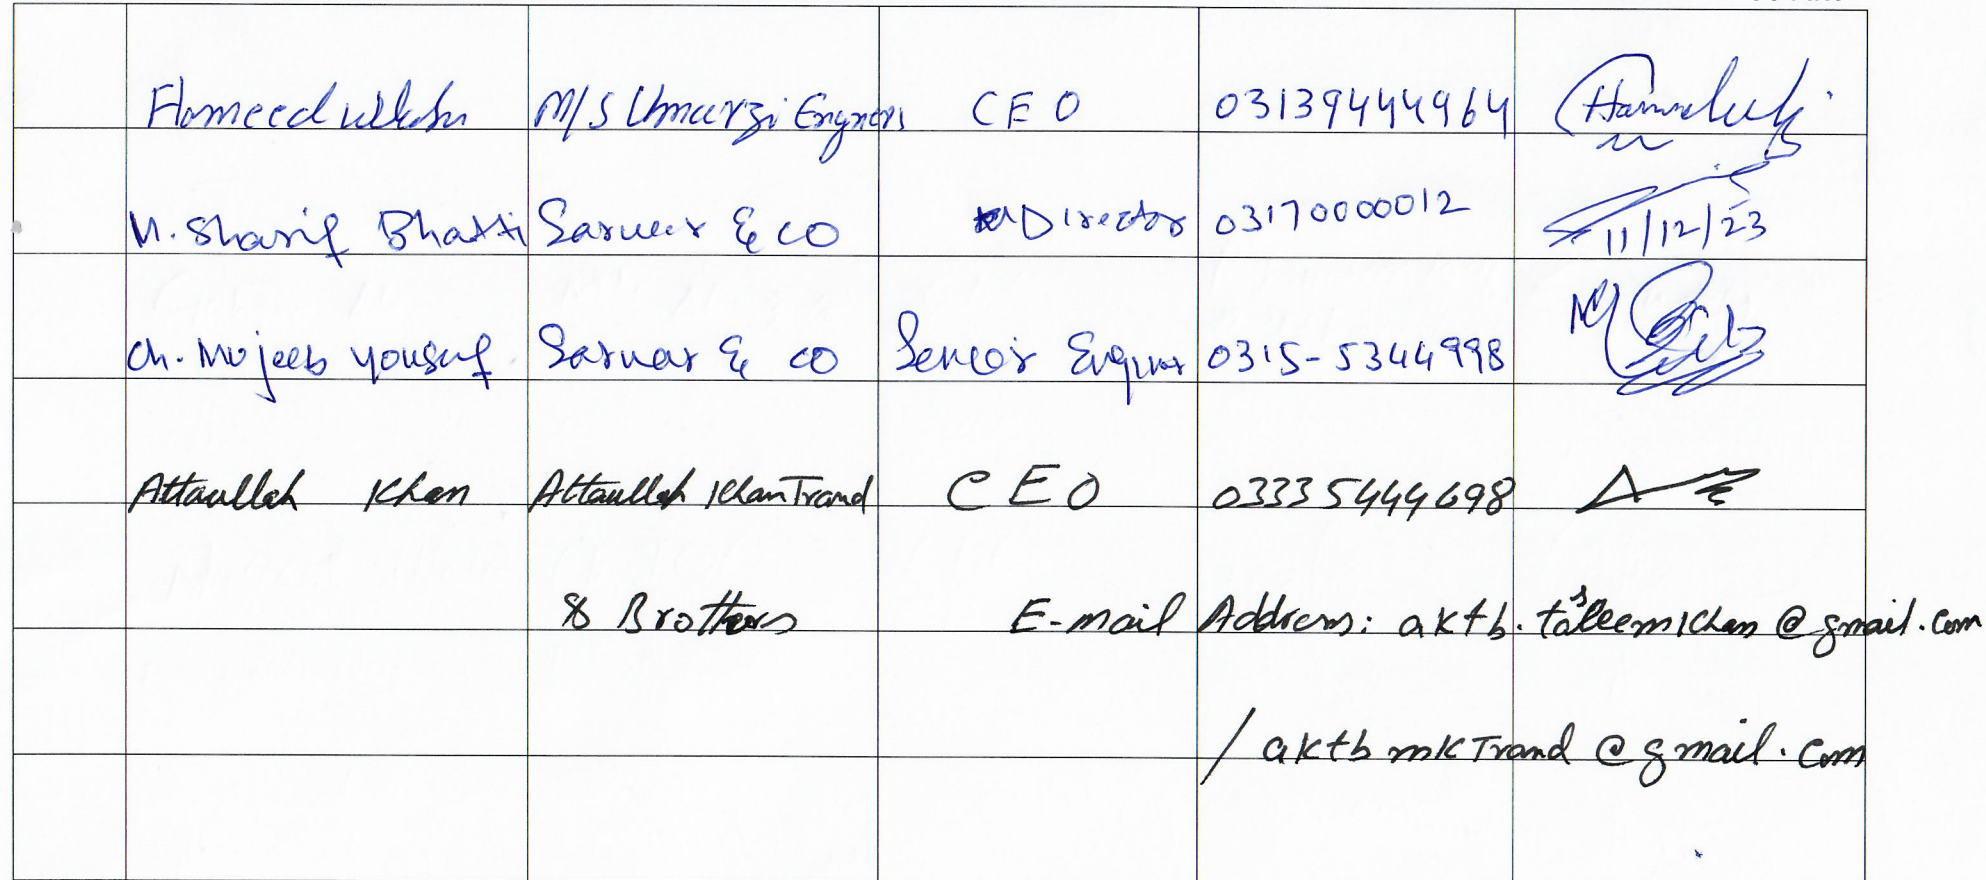 Hameedullah M/S Umarzi Engners CEO 03139444964
M. Sharif Bhatti Sarwar & CO Director 03170000012 11/12/23
Ch. Mujeeb Yousuf Sarwar & CO Senior Engner 0315-5344998
Attaullah Khan Attaullah Khan Trand CEO 03335444698
& Brothers E-mail Address: aktb.taleemkhan@gmail.com
/ aktbmkTrand@gmail.com